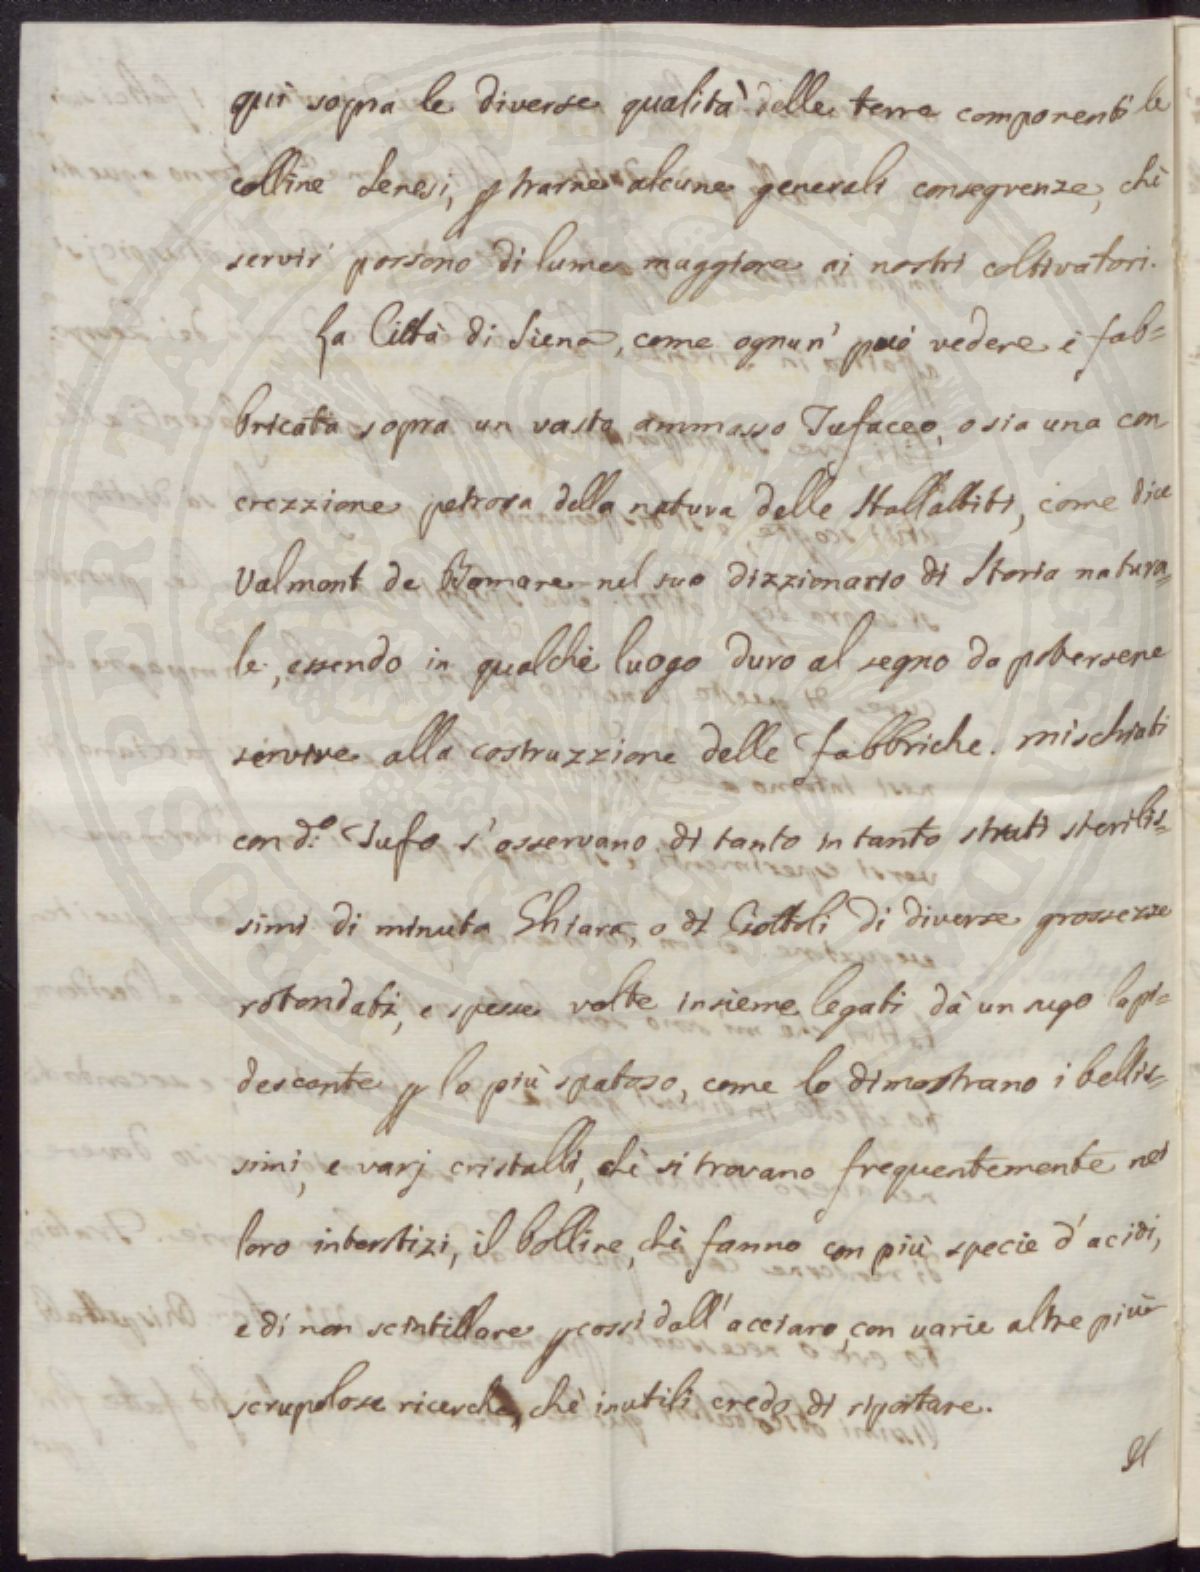 qui sopra le diverse qualità delle terre componenti le
colline Senesi, p trarne alcune generali conseguenze, chè
servir possono di lume maggiore ai nostri coltivatori.
La Città di Siena, come ognun' può vedere è fab=
bricata sopra un vasto ammasso Tufaceo, o sia una con
crezzione petrosa della natura delle Stallattiti, come dice
Valmont de Bomare nel suo dizzionario di Storia natura=
le, essendo in qualchè luogo duro al segno da potersene
servire alla costruzzione delle fabbriche. mischiati
con d.º Tufo s'osservano di tanto in tanto strati sterilis=
simi di minuta Ghiara, o di Ciottoli di diverse grossezze
rotondati, e spesse volte insieme legati dà un sugo lapi=
descente p lo più spatoso, come lo dimostrano i bellis=
simi, e varj cristalli, chè si trovano frequentemente nei
loro interstizi, il bollire, chè fanno con più specie d'acidi,
e di non scintillare pcossi dall'acciaro con varie altre più
scrupolose ricerche, chè inutili credo di riportare.
Il
POSPERITATI PUBLICAE